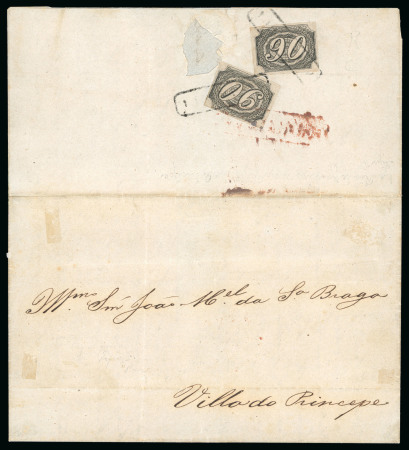 90
90
Illmo Snr João Mel da Sa Braga
Villa do Principe